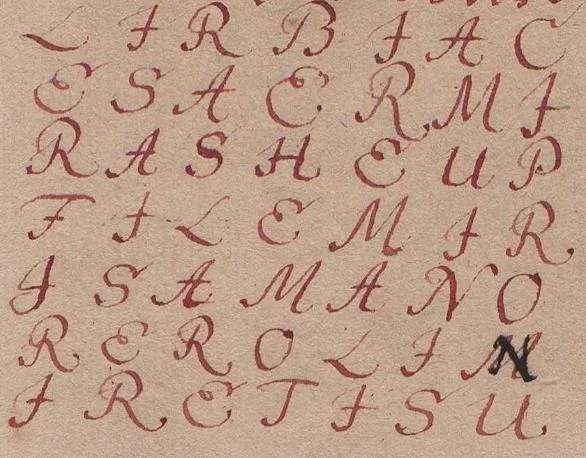 L I R B I A C
E S A E R M I
R A S H E U P
F I L E M I R
I S A M A N O
R E R O L I N
I R E T I S U